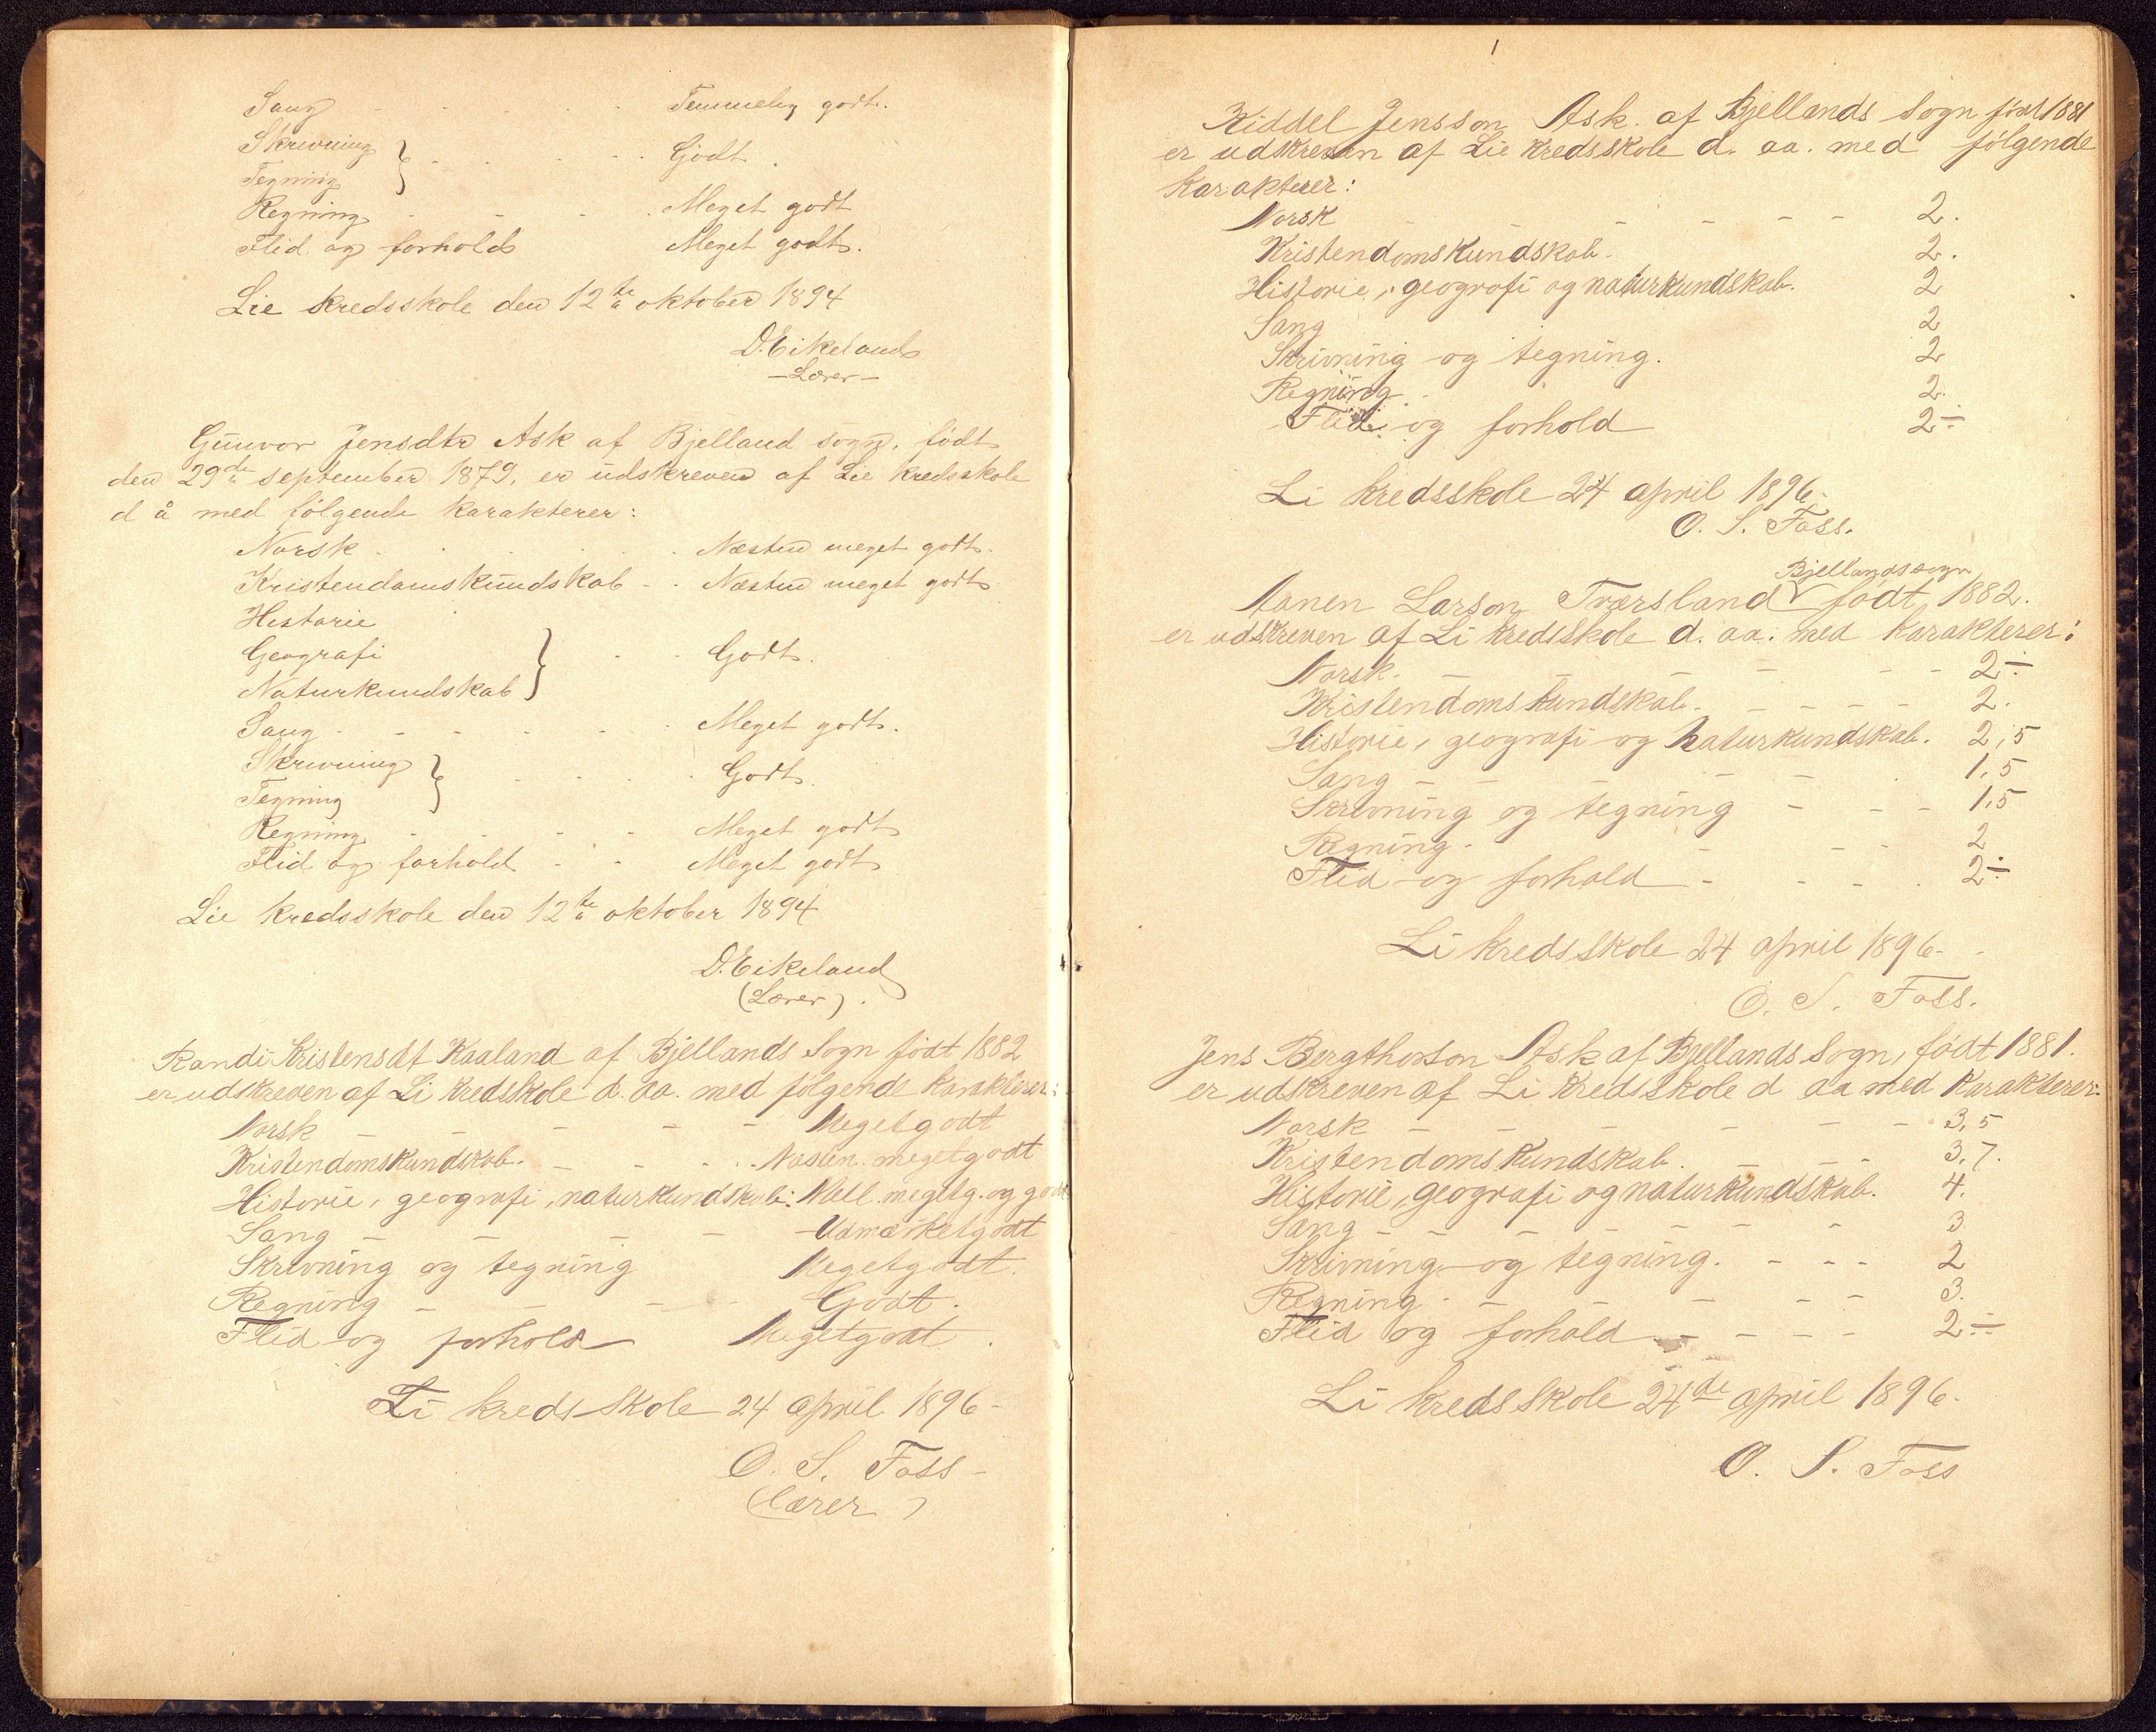 Sang - - - - - Temmelig godt.
Skrivning } - - - - Godt.
Tegning
Regning - - - - Meget godt
Flid og forhold Meget godt.
Lie kredsskole den 12te oktober 1894
D. Eikeland
- Lærer -
Gunvor Jensdtr Ask af Bjelland sogn, født
den 29de september 1879, er udskreven af Lie kredsskole
d å med følgende karakterer:
Norsk - - - - Næsten meget godt.
Kristendomskundskab - - Næsten meget godt
Historie
Geografi } - - Godt.
Naturkundskab
Sang - - - - - - Meget godt.
Skrivning } - - - - Godt.
Tegning
Regning - - - - Meget godt
Flid og forhold - - Meget godt
Lie kredsskole den 12te oktober 1894
D. Eikeland
(Lærer).
Randi Kristensdt Kaaland af Bjellands Sogn født 1882
er udskreven af Li kredsskole d. aa. med følgende karakterer:
Norsk - - - - - Megetgodt
Kristendomskundskab. - - - - Næsten megetgodt
Historie, geografi, naturkundskab: Mell. megetg. og godt
Sang - - - - Udmærketgodt
Skrivning og tegning Megetgodt.
Regning - - - - Godt.
Flid og forhold Megetgodt.
Li kredsskole 24 april 1896-
O. S. Foss -
(lærer)
1
Kiddel Jensson Ask. af Bjellands Sogn født 1881
er udskreven af Lie kredsskole d. aa. med følgende
karakterer:
Norsk - - - - - - 2.
Kristendomskundskab. 2.
Historie, geografi og naturkundskab. 2
Sang 2
Skrivning og tegning. 2
Regning - 2.
Flid og forhold 2÷
Li kredsskole 24 april 1896.
O. S. Foss.
Bjellands sogn
Aanen Larson Tværsland √ født 1882.
er udskreven af Li kredsskole d. aa. med karakterer:
Norsk. - - - - - - 2÷
Kristendomskundskab. - - - - - 2.
Historie, geografi og naturkundskab. 2,5
Sang - - - - 1,5
Skrivning og tegning - - - 1,5
Regning - - - - 2
Flid og forhold - - - - 2÷
Li kredsskole 24 april 1896-
O. S. Foss.
Jens Bergthorson Ask af Bjellands Sogn, født 1881.
er udskreven af Li kredsskole d aa med karakterer:
Norsk - - - - - - - 3,5
Kristendomskundskab. - - - 3,7.
Historie, geografi og naturkundskab. 4.
Sang - - - - - - - 3
Skrivning og tegning. - - - 2
Regning - - - - - - 3.
Flid og forhold - - - - 2÷
Li kredsskole 24de april 1896.
O. S. Foss